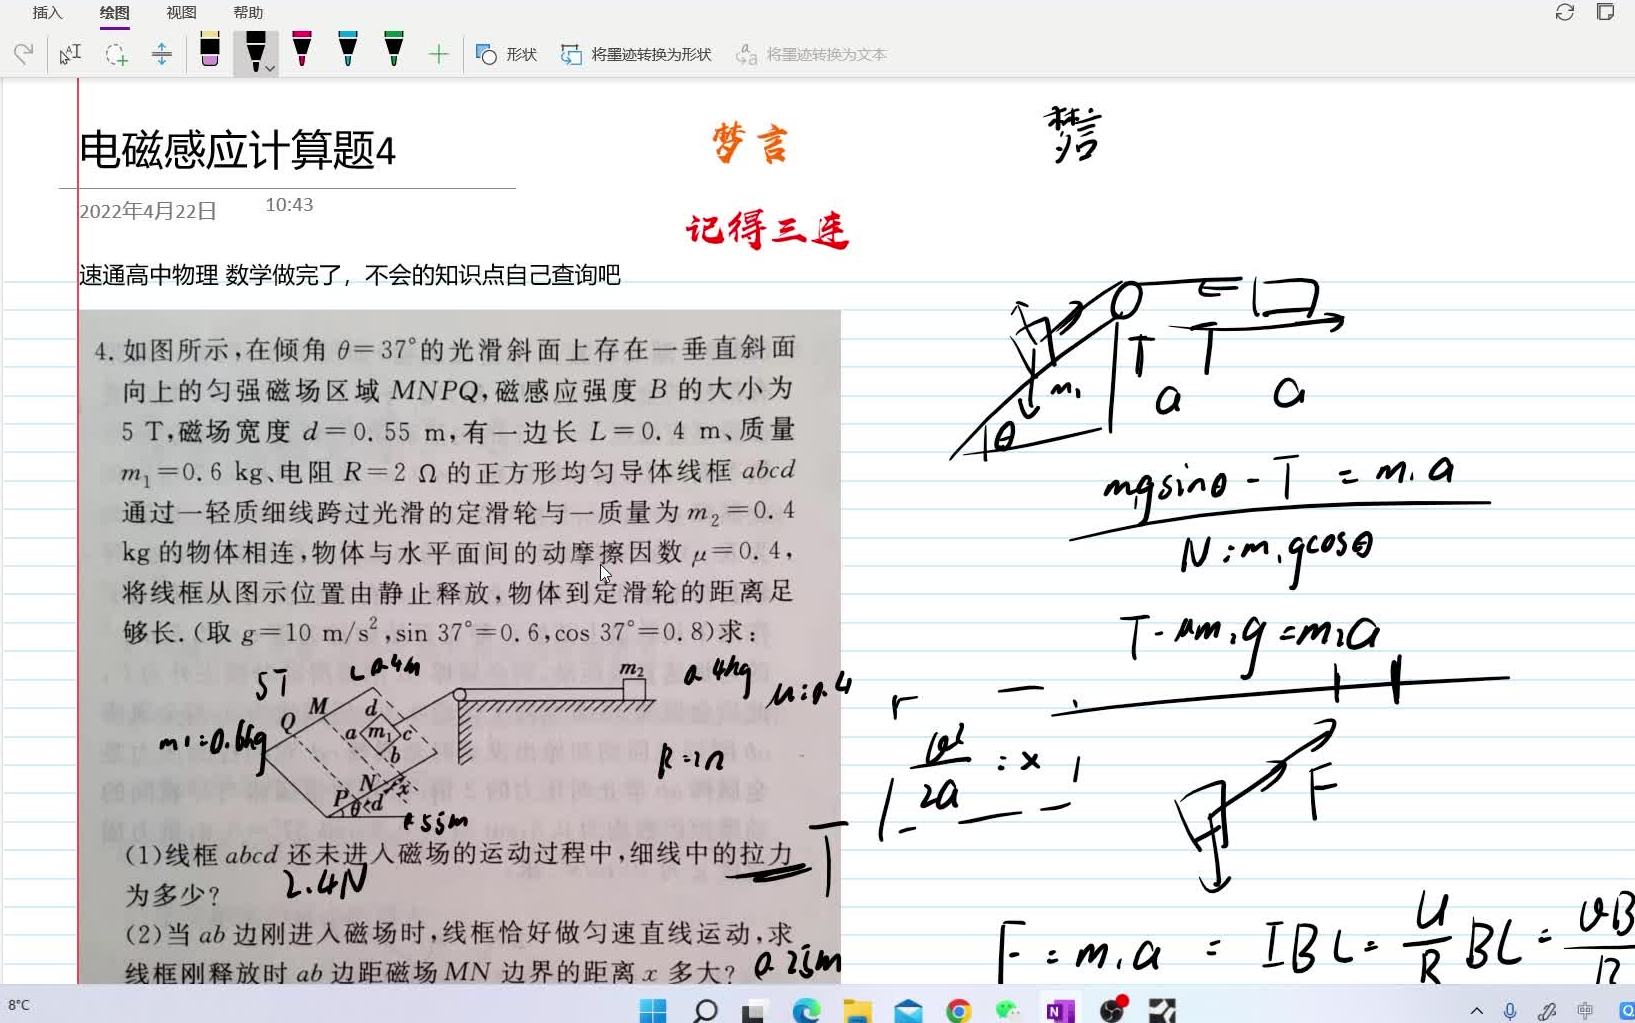 插入 绘图 视图 帮助
形状 将墨迹转换为形状 将墨迹转换为文本
电磁感应计算题4
梦言
梦言
2022年4月22日 10:43
记得三连
速通高中物理 数学做完了，不会的知识点自己查询吧
4. 如图所示,在倾角 θ=37°的光滑斜面上存在一垂直斜面
向上的匀强磁场区域 MNPQ,磁感应强度 B 的大小为
5 T,磁场宽度 d=0.55 m,有一边长 L=0.4 m、质量
m₁=0.6 kg、电阻 R=2 Ω 的正方形均匀导体线框 abcd
通过一轻质细线跨过光滑的定滑轮与一质量为 m₂=0.4
kg 的物体相连,物体与水平面间的动摩擦因数 μ=0.4,
将线框从图示位置由静止释放,物体到定滑轮的距离足
够长.(取 g=10 m/s²,sin 37°=0.6,cos 37°=0.8)求:
5T L 0.4m m₂ 0.4kg μ=0.4
m1=0.6kg Q M d a m₁ c b N x P θ d
0.55m
(1)线框 abcd 还未进入磁场的运动过程中,细线中的拉力
为多少? 2.4N
(2)当 ab 边刚进入磁场时,线框恰好做匀速直线运动,求
线框刚释放时 ab 边距磁场 MN 边界的距离 x 多大? 0.25m
m₁ θ T T a a
m₁gsinθ - T = m₁a
N = m₁gcosθ
T - μm₂g = m₂a
v²/2a = x
T
F
F = m₁a = IBL = U/R BL =
8°C
中